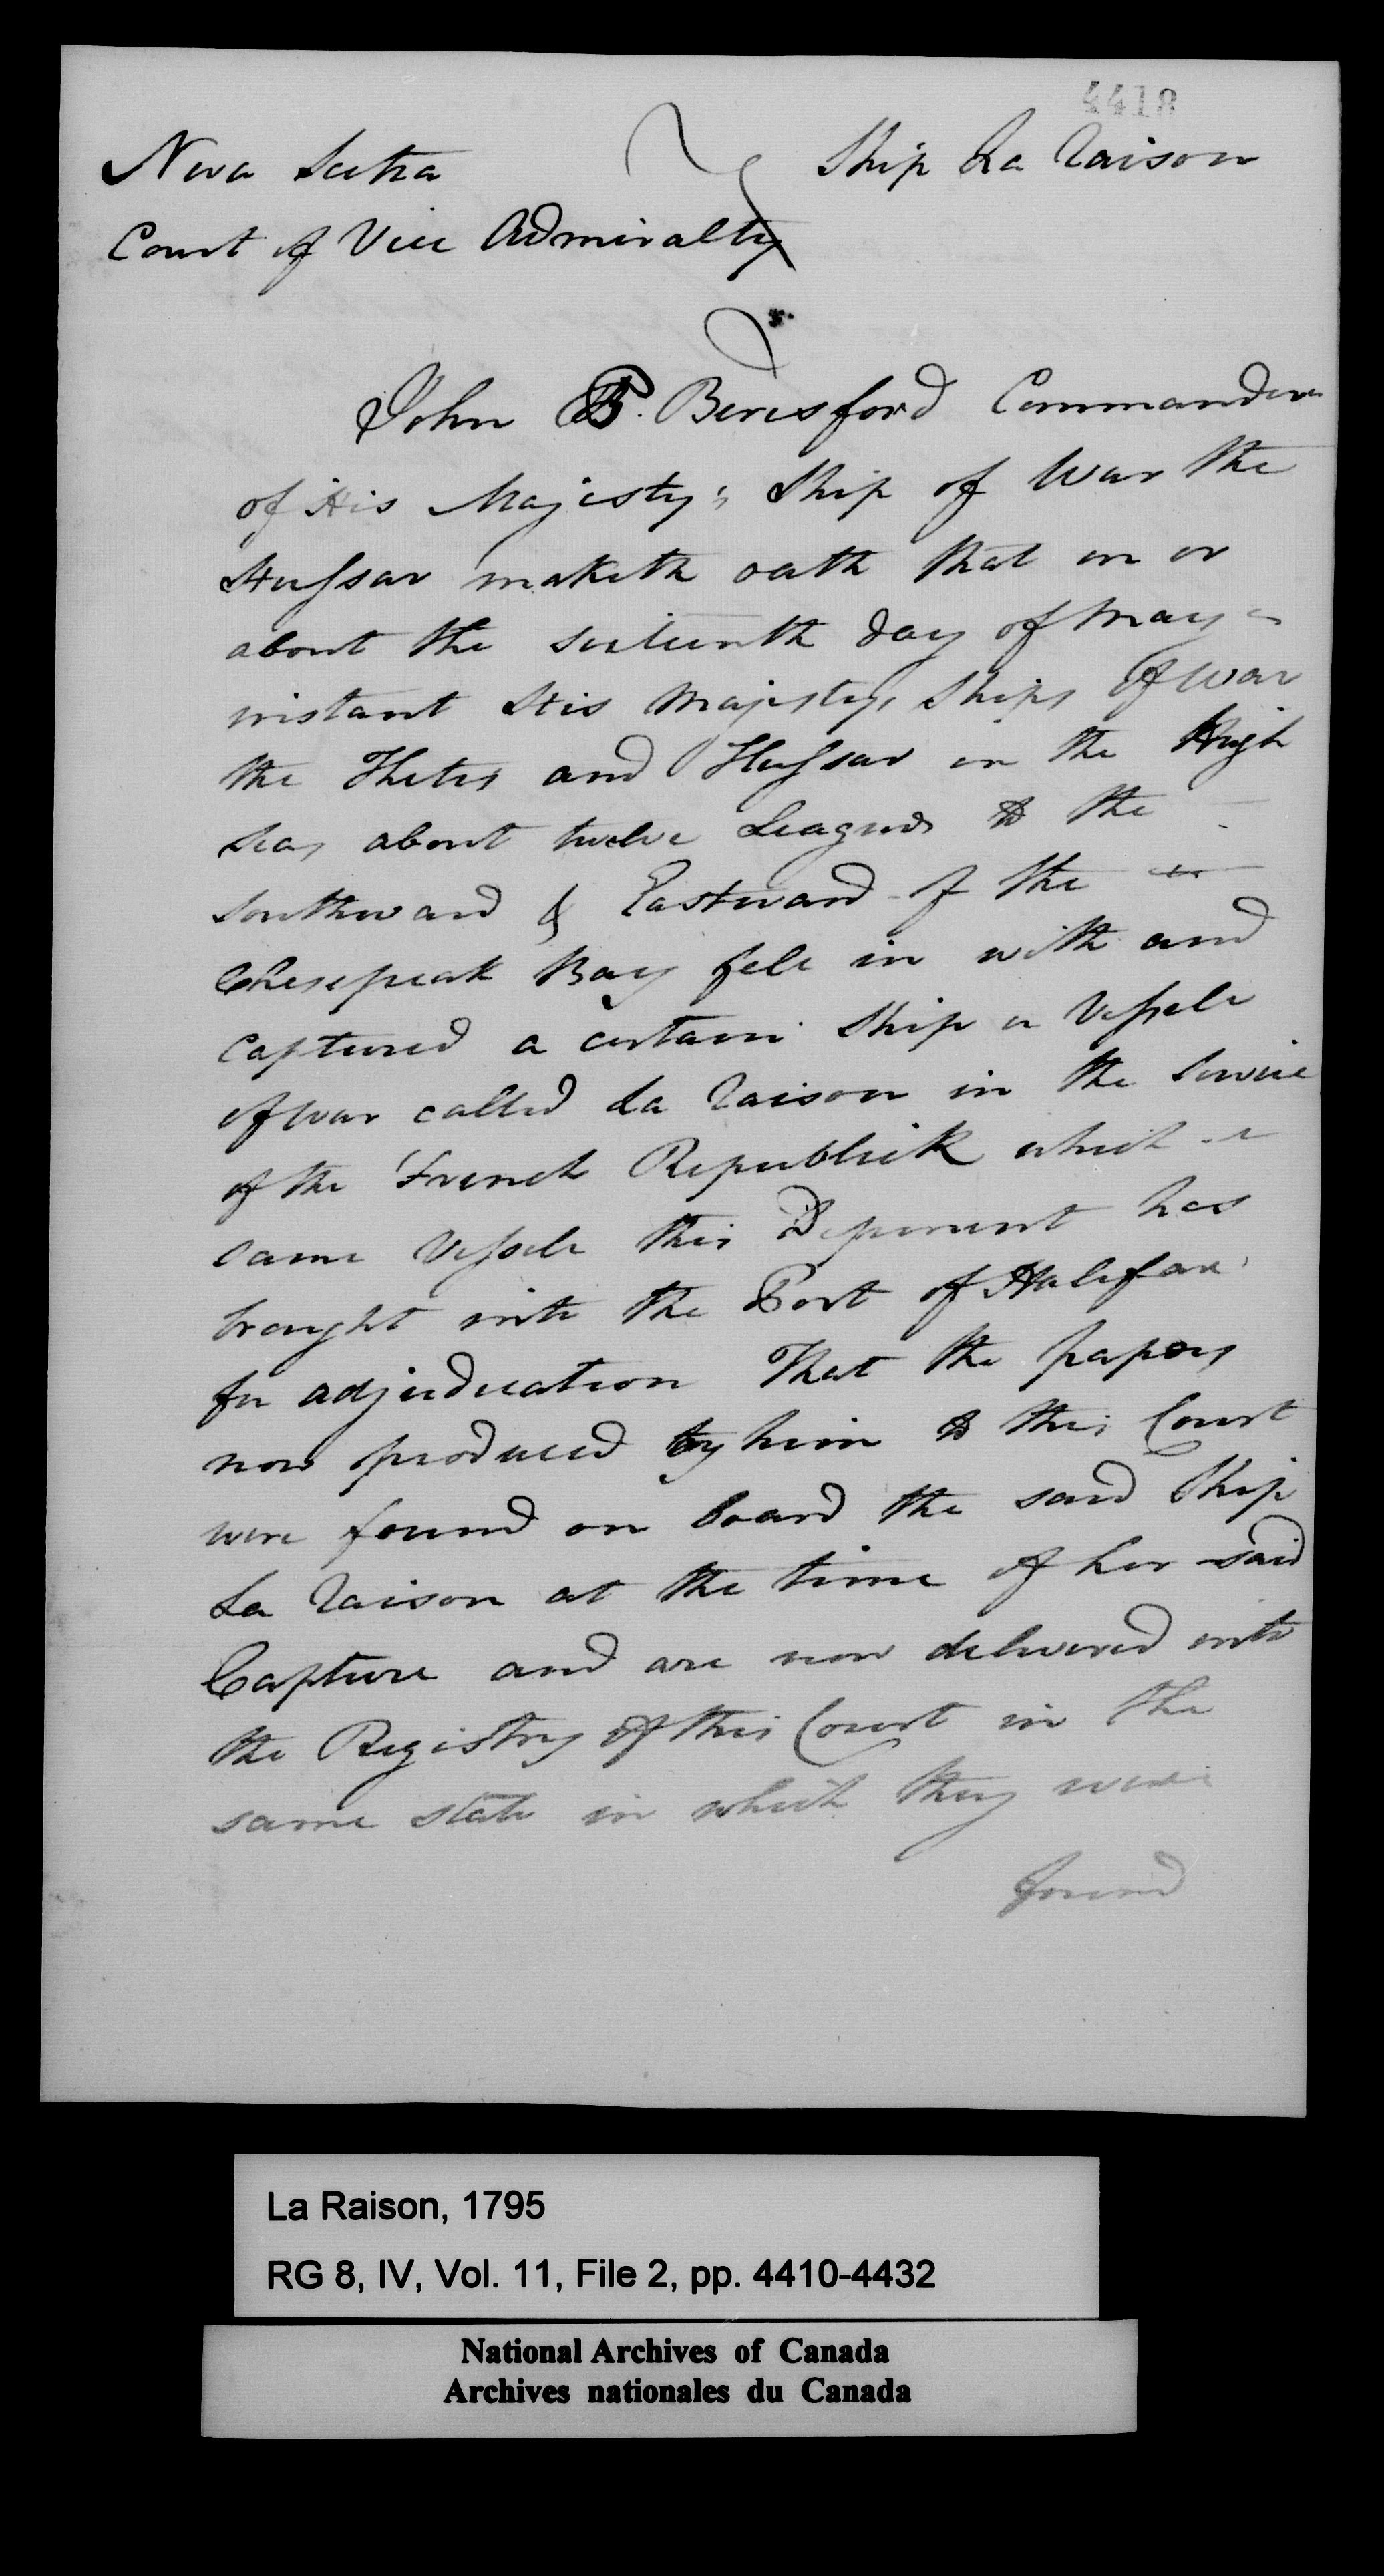 4418
Nova Scotia
Court of Vice Admiralty
Ship La Raison
John P. Beresford Commander
of His Majesty's Ship of War the
Hussar maketh oath that on or
about the sixteenth day of May
instant His Majestys Ships of War
the Thetis and Hussar on the High
Seas about twelve Leagues to the
Southward & Eastward of the
Chesepeak Bay fell in with and
captured a certain Ship or Vessele
of war called La Raison in the Service
of the French Republick which
same Vessele this Deponent has
brought into the Port of Halifax
for adjudication That the papers
now produced by him to this Court
were found on board the said Ship
La Raison at the time of her said
Capture and are now delivered into
the Registry of this Court in the
same state in which they were
found
La Raison, 1795
RG 8, IV, Vol. 11, File 2, pp. 4410-4432
National Archives of Canada
Archives nationales du Canada